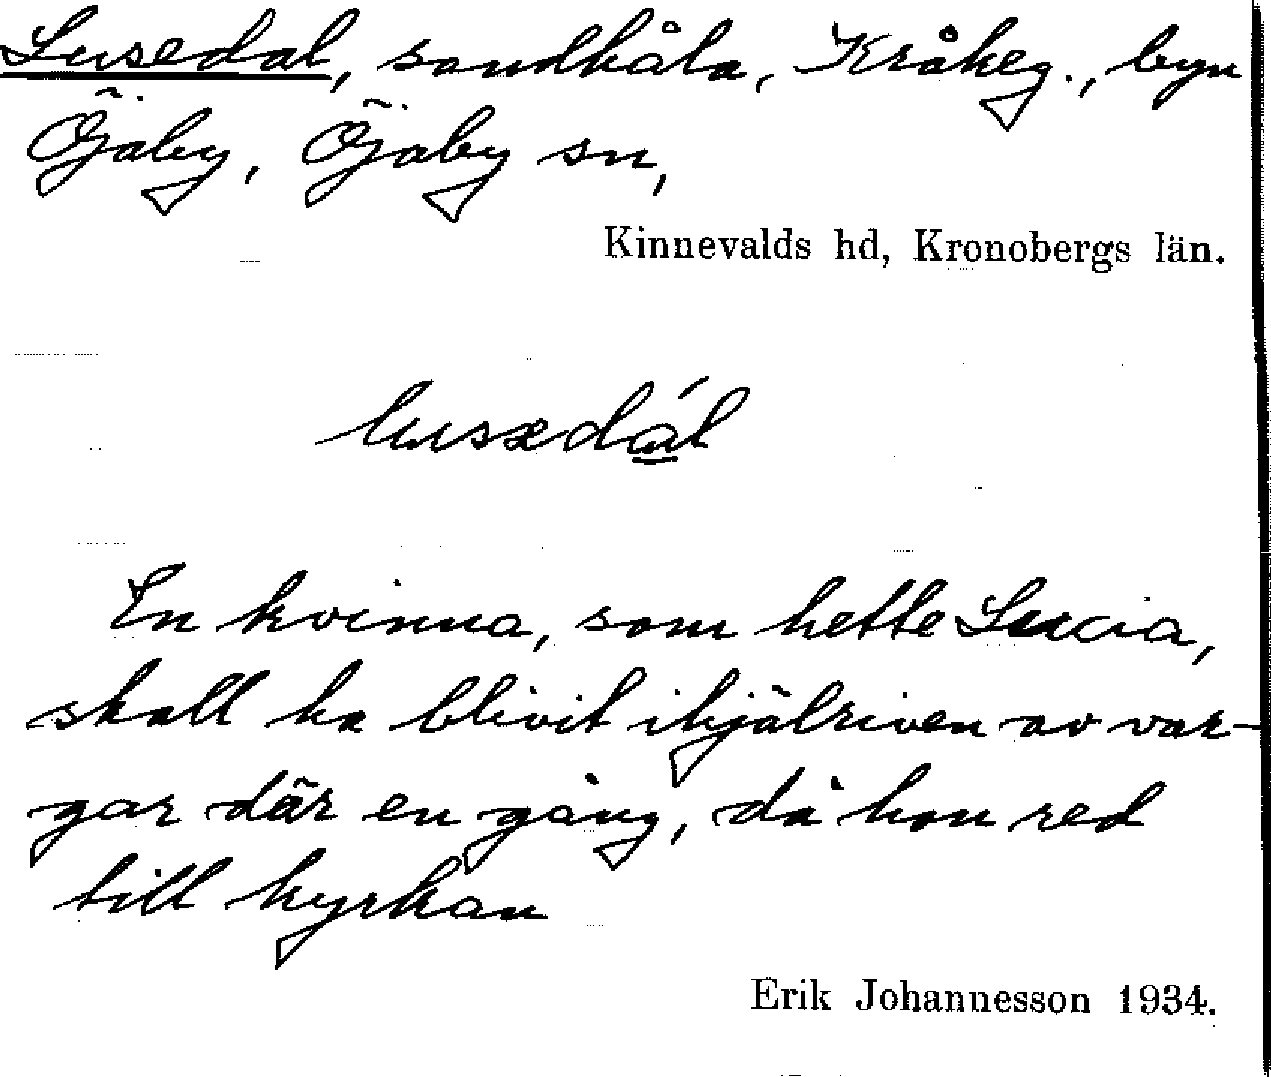 Lusedal, sandhåla, Kråkeg., byn
Öjaby, Öjaby sn,
Kinnevalds hd, Kronobergs län.
lusədá̲l
En kvinna, som hette Lucia,
skall ha blivit ihjälriven av var-
gar där en gång, då hon red
till kyrkan
Erik Johannesson 1934.